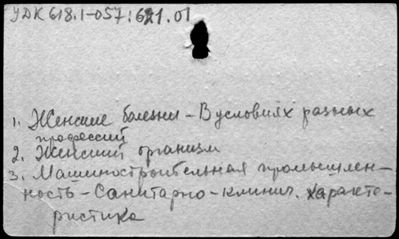 УДК 618.1-057:621.01
1. Женские болезни - В условиях разных
профессий
2. Женский организм
3. Машиностроительная промышлен-
ность - Санитарно-клинич. характе-
ристика